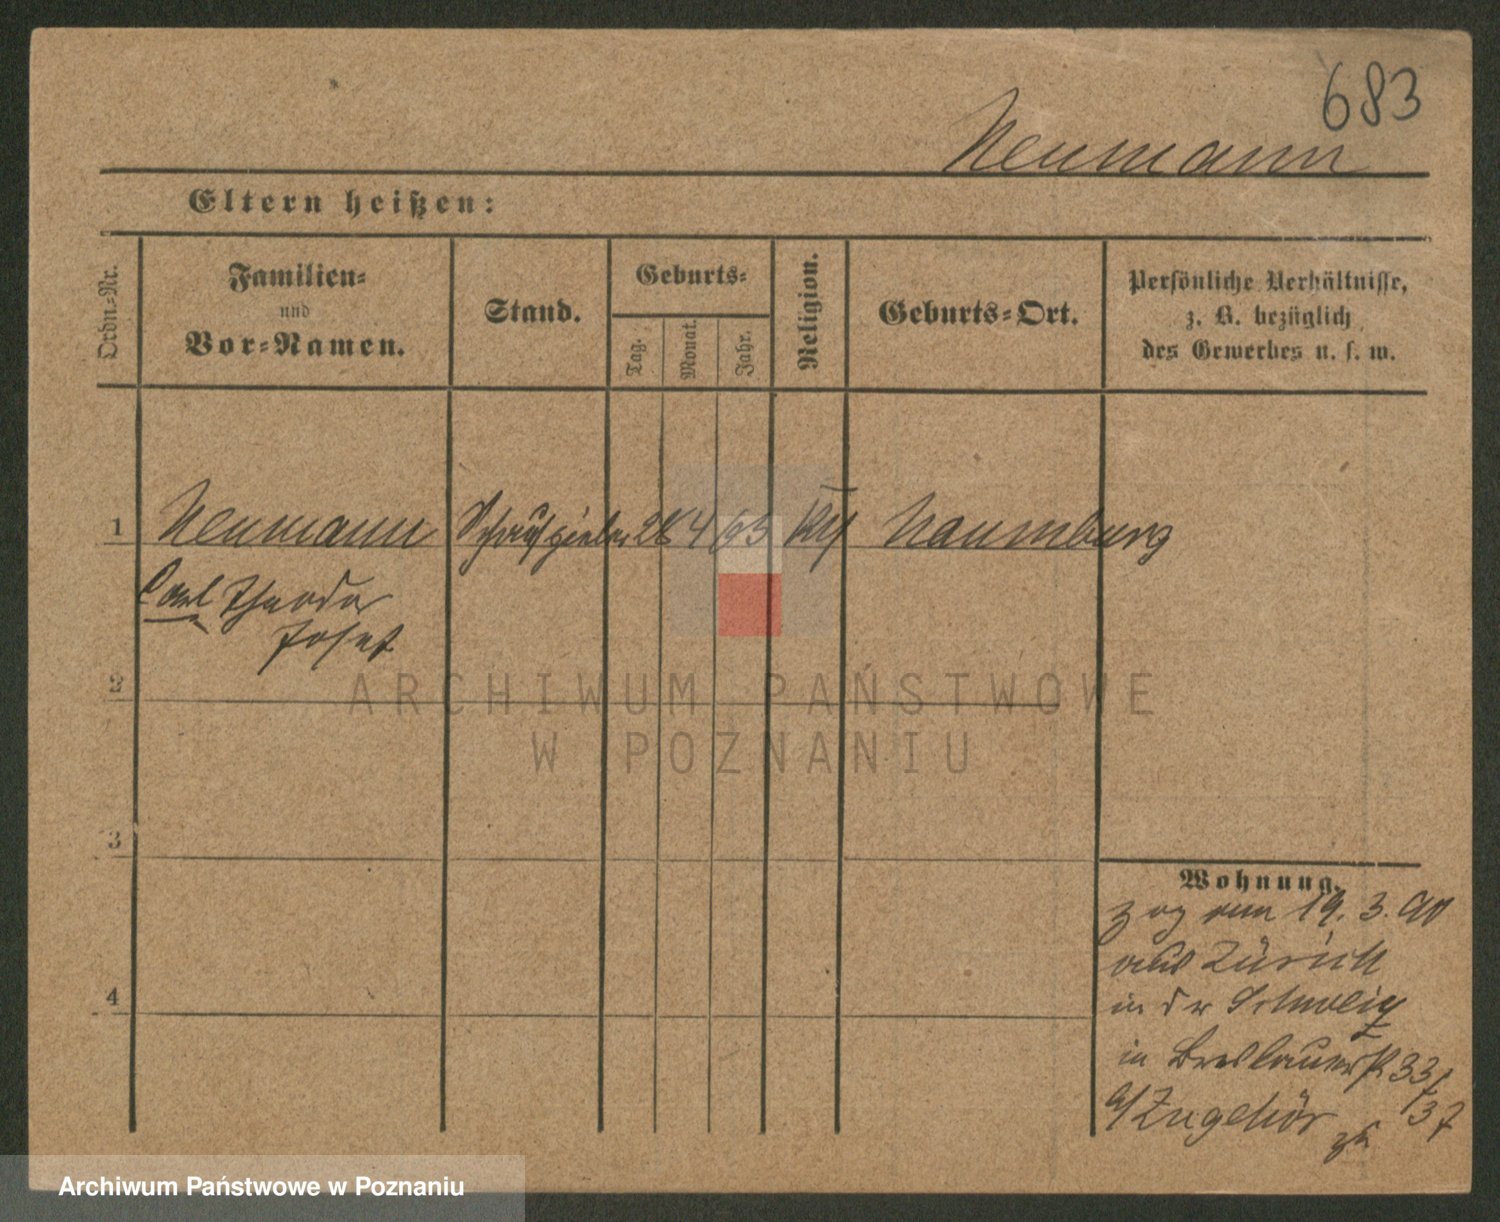 683
Neumann
Eltern heißen:
Ordn.-Nr.
Familien-
und
Vor-Namen.
Stand.
Geburts-
Tag.
Monat.
Jahr.
Religion.
Geburts-Ort.
Persönliche Verhältnisse,
z. B. bezüglich
des Gewerbes u. s. w.
1 Neumann Schauspieler 28 4 63 Naumburg
Carl Theodor
Josef
2
ARCHIWUM PAŃSTWOWE
W POZNANIU
3
Wohnung.
zog am 19. 3. 90
aus Zürich
in der Schweiz
4
in Breslauerstr 33/
37
Zugehör
Archiwum Państwowe w Poznaniu